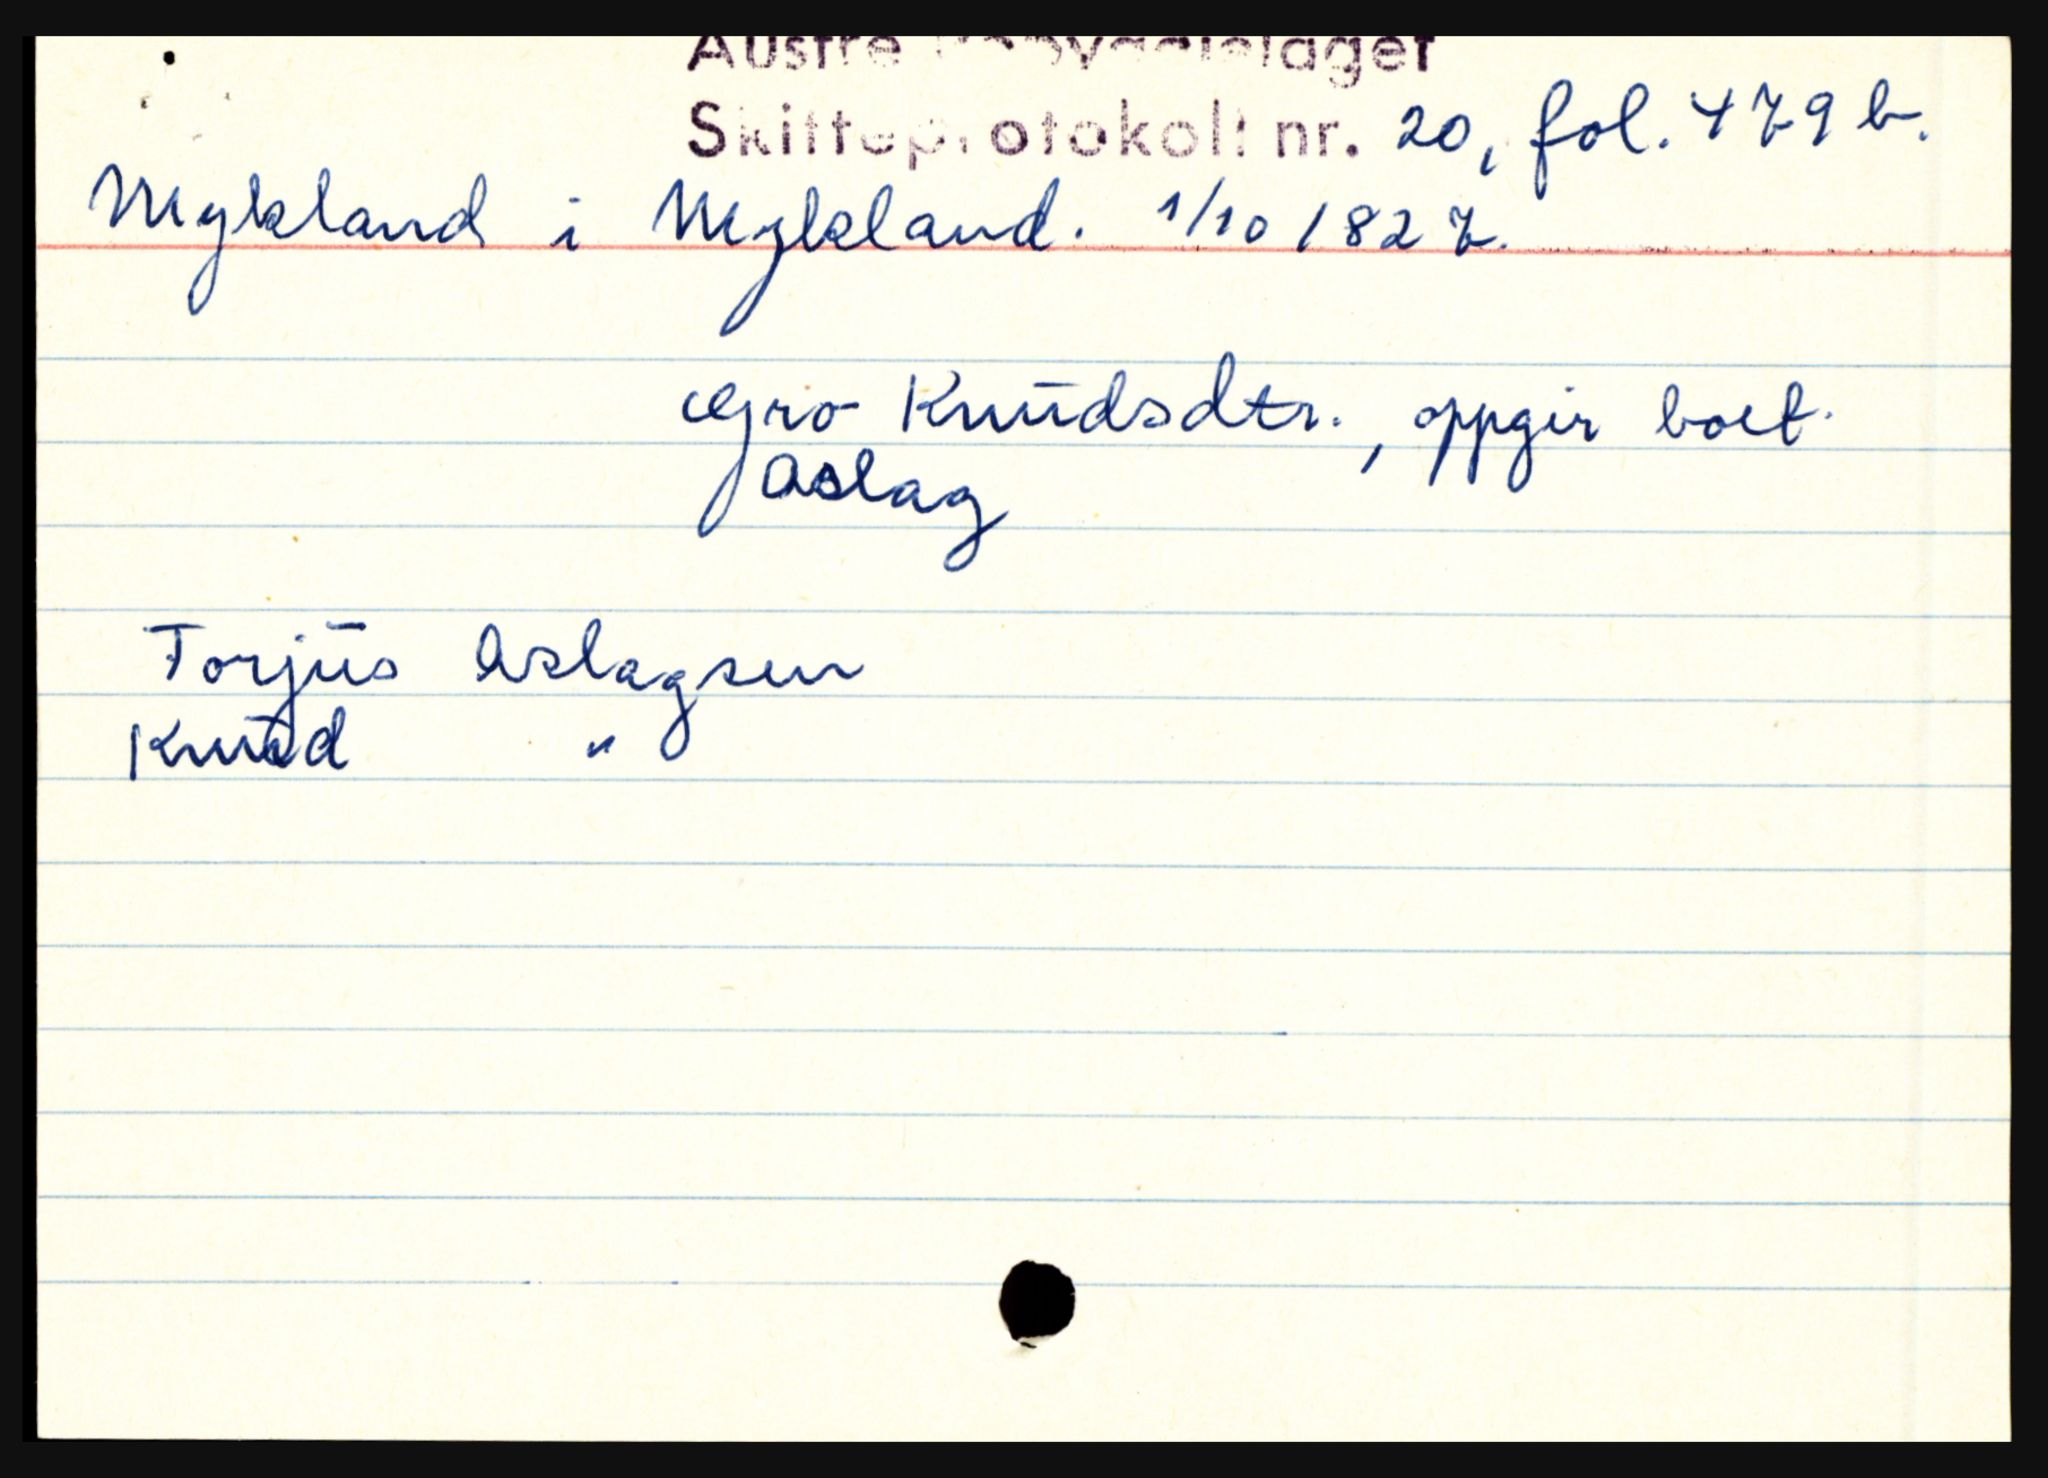 Austre Råbyggjelaget
Skifteprotokoll nr. 20, fol. 479 b.
Mykland i Mykland. 1/10 1827.
Gro Knudsdtr., oppgir boet.
Aslag
Torjus Aslagsen
Knud "